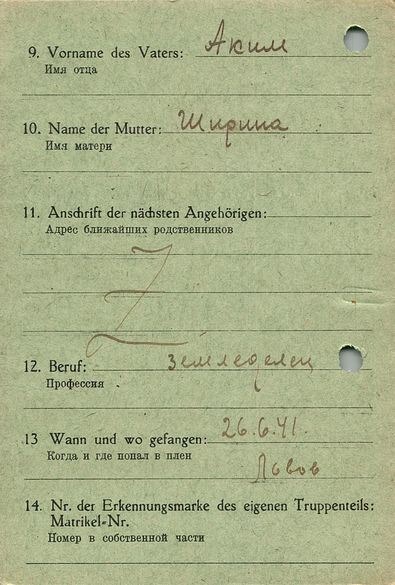 9. Vorname des Vaters: Аким
Имя отца
10. Name der Mutter: Ширина
Имя матери
11. Anschrift der nächsten Angehörigen:
Адрес ближайших родственников
12. Beruf: земледелец
Профессия
13 Wann und wo gefangen: 26.6.41.
Когда и где попал в плен
Львов
14. Nr. der Erkennungsmarke des eigenen Truppenteils:
Matrikel-Nr.
Номер в собственной части